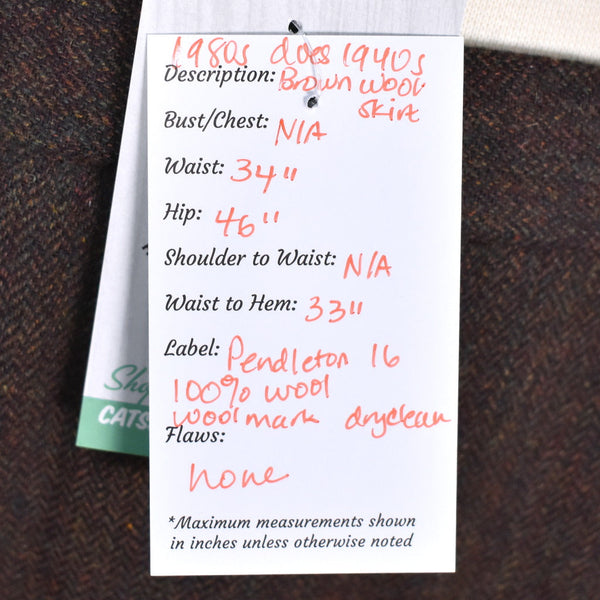 1980s does 1940s
Description: Brown wool
skirt
Bust/Chest: N/A
Waist: 34"
Hip: 46"
Shoulder to Waist: N/A
Waist to Hem: 33"
Label: Pendleton 16
100% wool
woolmark dryclean
Flaws:
none
*Maximum measurements shown
in inches unless otherwise noted
Shop
CATS